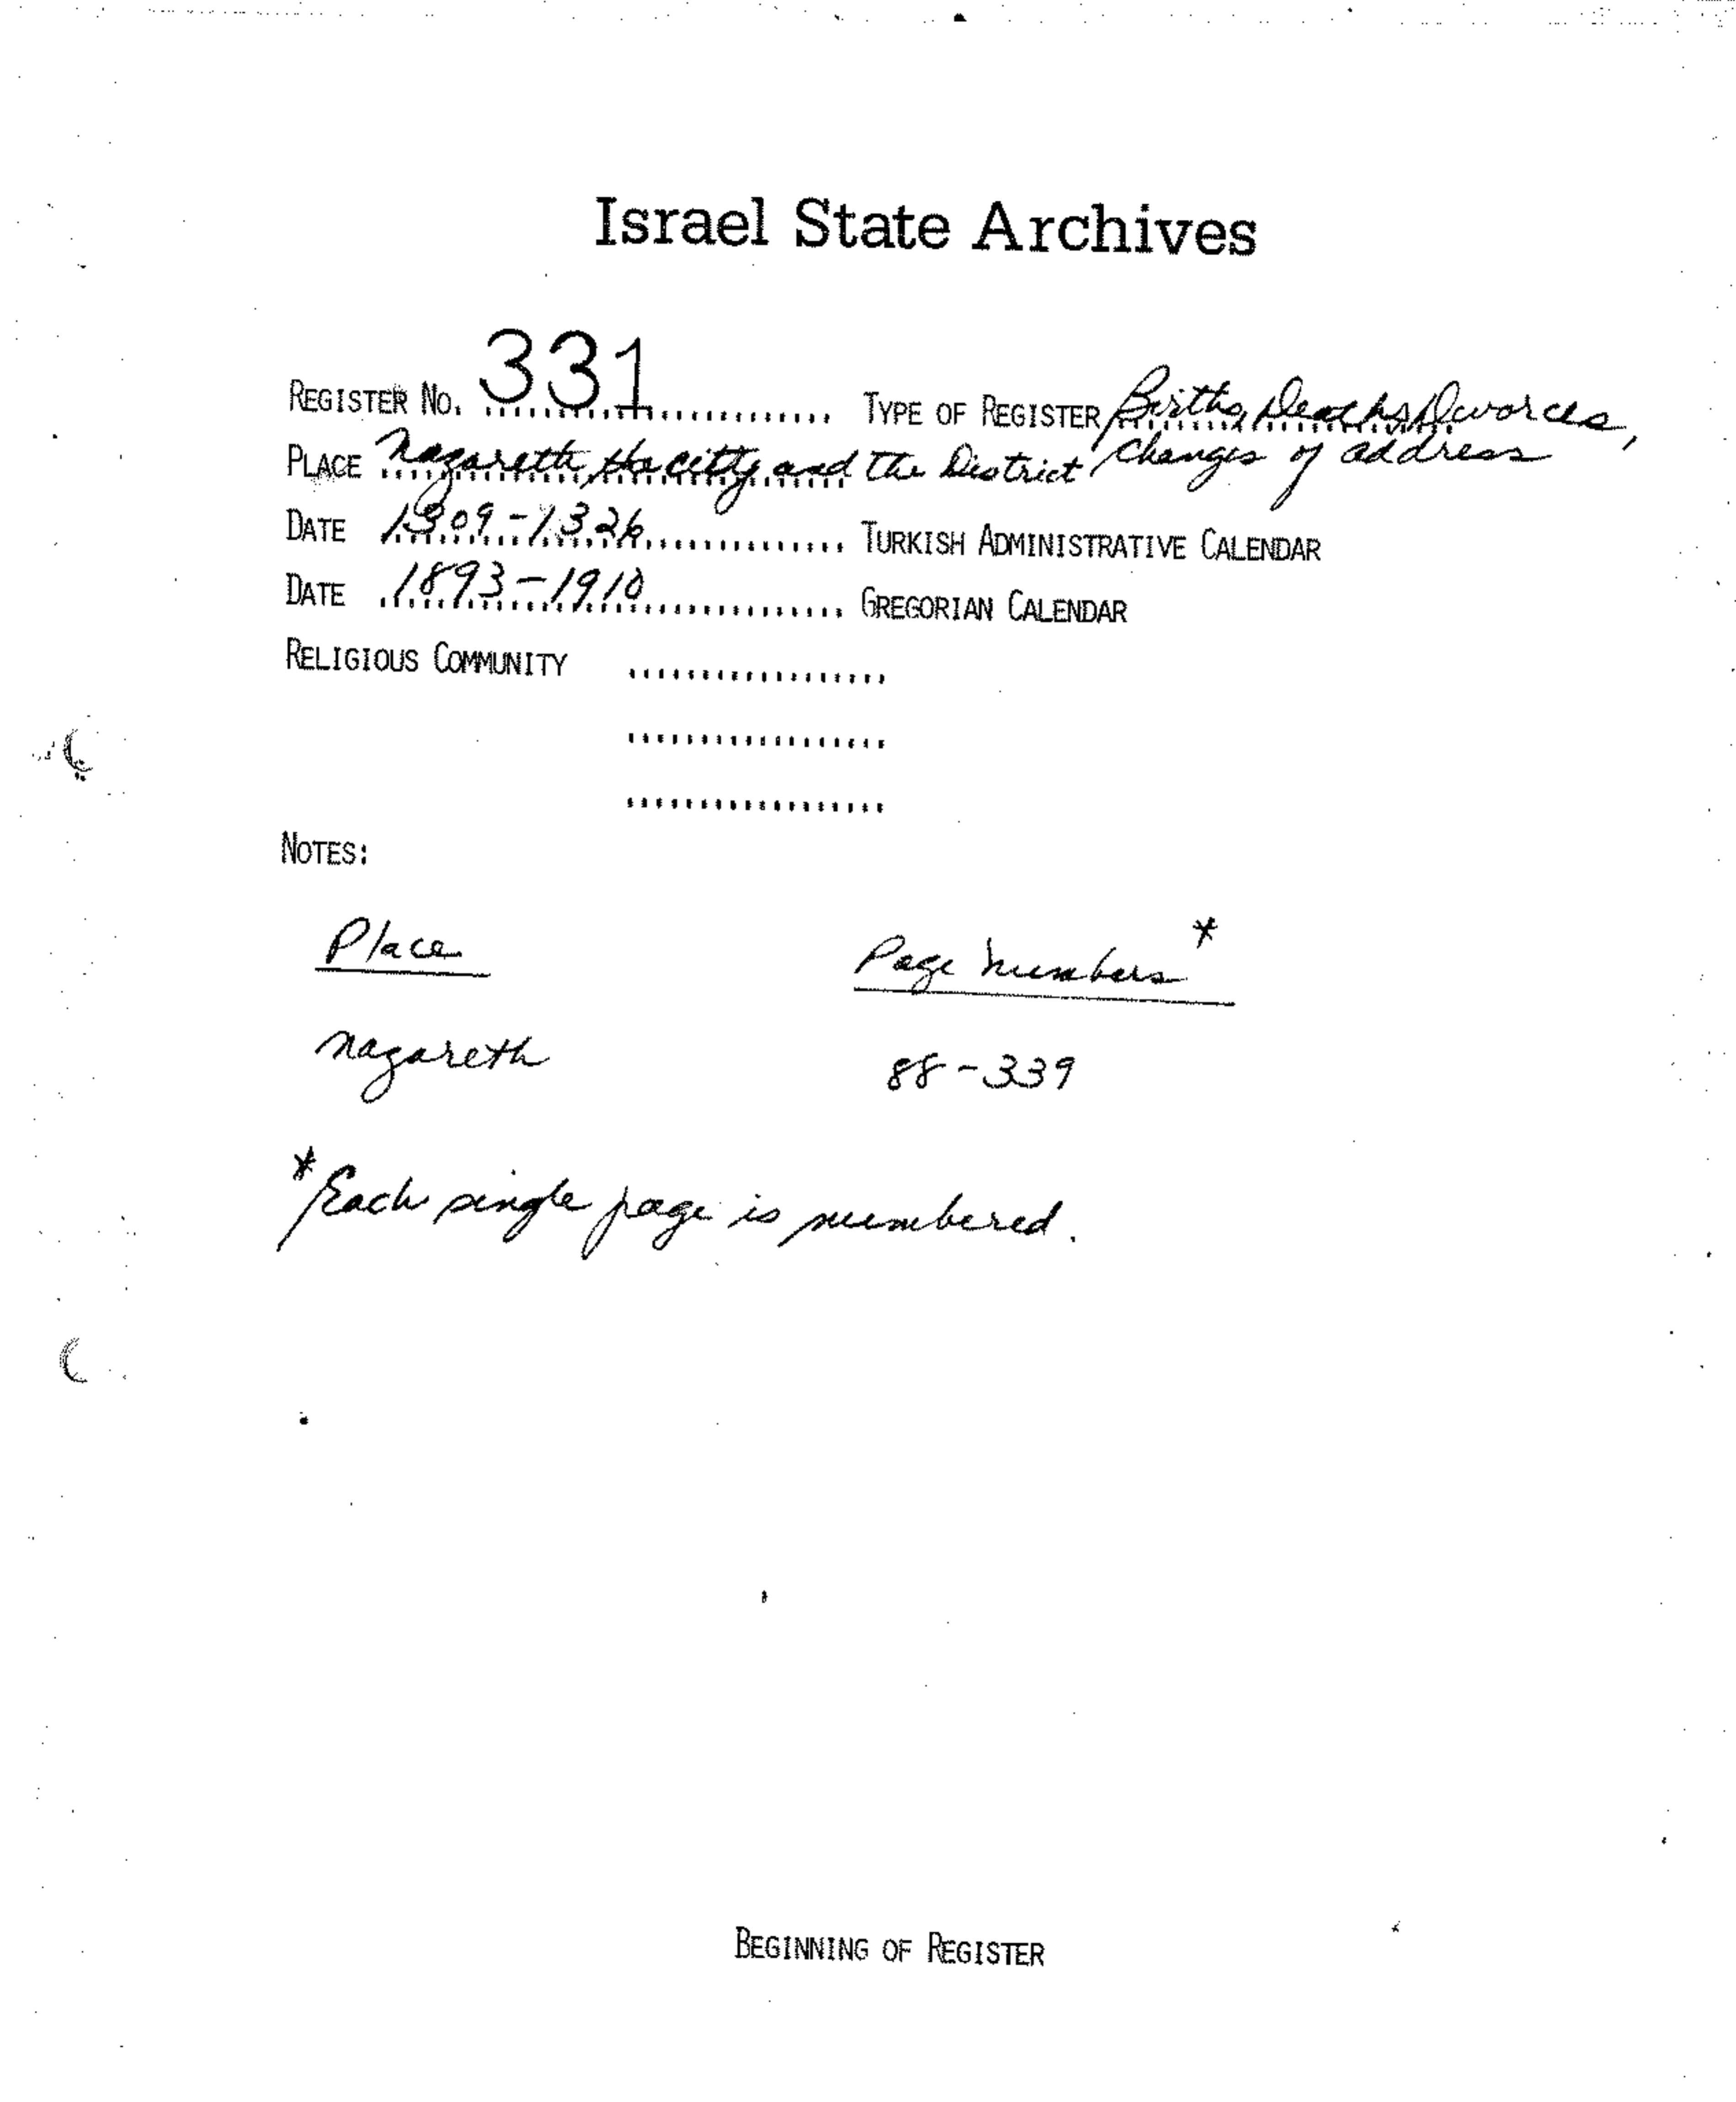 Israel State Archives
REGISTER NO. 331 TYPE OF REGISTER Births, Deaths, Divorces,
PLACE Nazareth, the city and the District changes of address
DATE 1309-1326 TURKISH ADMINISTRATIVE CALENDAR
DATE 1893-1910 GREGORIAN CALENDAR
RELIGIOUS COMMUNITY
NOTES:
Place Page Numbers *
Nazareth 88-339
* Each single page is numbered.
BEGINNING OF REGISTER